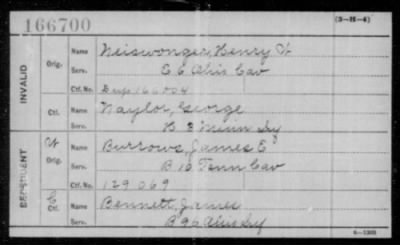 166700
(3-H-4)
INVALID
Orig.
Name Neiswonger, Henry W
Serv. E 6 Ohio Cav
Ctf. No. Dup 166004
Ctf.
Name Naylor, George
Serv. H 8 Minn Inf
DEPENDENT
W
Orig.
Name Burrows, James E
Serv. B 10 Tenn Cav
Ctf. No. 129069
C
Ctf.
Name Bennett, James
Serv. B 96 Ohio Inf